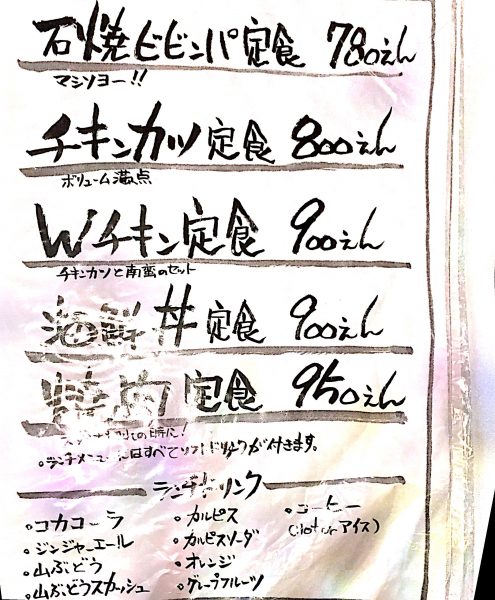 石焼ビビンバ定食 780えん
マシソヨー!!
チキンカツ定食 800えん
ボリューム満点
Wチキン定食 900えん
チキンカツと南蛮のセット
海鮮丼定食 900えん
焼肉定食 950えん
の時に!
。ランチメニューにはすべてソフトドリンクが付きます。
ランチドリンク
。コカコーラ
。ジンジャーエール
。山ぶどう
。山ぶどうスカッシュ
。カルピス
。カルピスソーダ
。オレンジ
。グレープフルーツ
。コーヒー
(Hot or アイス)